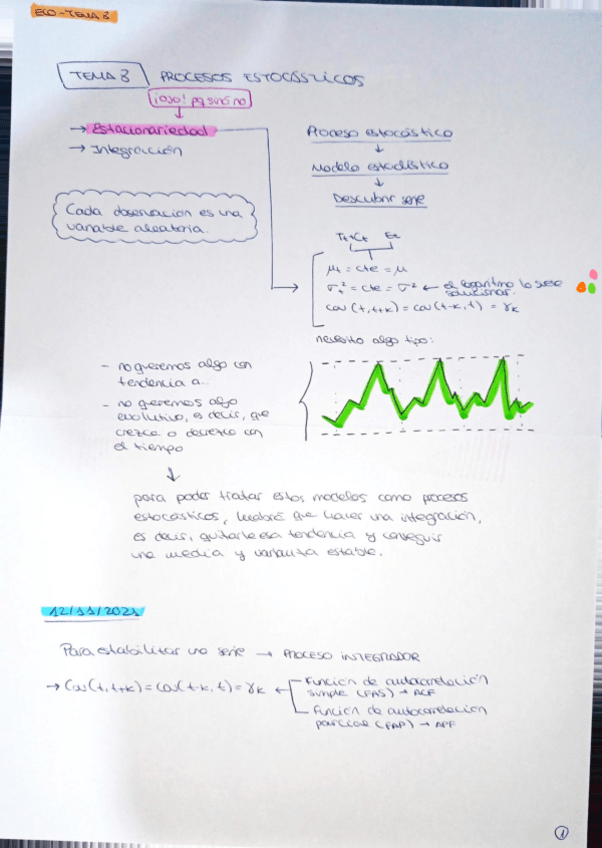 ECO-TEMA 3
TEMA 3 PROCESOS ESTOCÁSTICOS
¡ojo! pq sinó no
→ Estacionariedad
→ Integración
Proceso estocástico
↓
Modelo estadístico
↓
Describir serie
Cada observación es una
variable aleatoria.
Tt+Ct Et
μt = cte = μ
σt² = cte = σ² ← el logaritmo lo suele
solucionar.
cov (t, t+k) = cov (t-k, t) = γk
necesito algo tipo:
- no queremos algo con
tendencia a...
- no queremos algo
evolutivo, es decir, que
crezca o decrezca con
el tiempo
↓
para poder tratar estos modelos como procesos
estocásticos, habrá que hacer una integración,
es decir, quitarle esa tendencia y conseguir
una media y varianza estable.
12/11/2021
Para estabilizar una serie → PROCESO INTEGRADOR
→ Cov(t, t+k) = cov(t-k, t) = γk ←
Función de autocorrelación
simple (FAS) → ACF
Función de autocorrelación
parcial (FAP) → APF
1